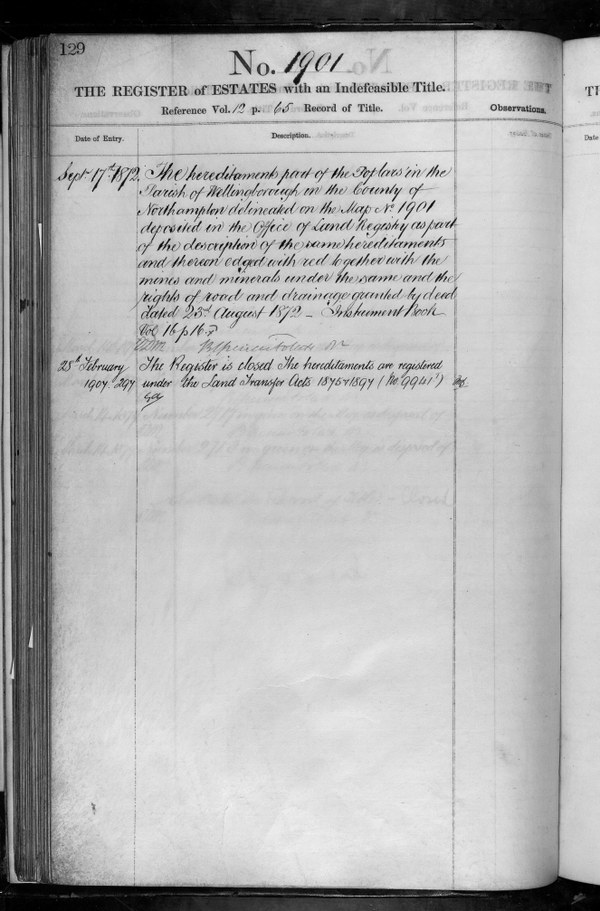 129
No. 1901
THE REGISTER of ESTATES with an Indefeasible Title.
Reference Vol. 12 p. 65 Record of Title.
Observations.
Date of Entry.
Description.
Sept. 17th 1872.
The hereditaments part of the Poplars in the
Parish of Wellingborough in the County of
Northampton delineated on the Map No 1901
deposited in the Office of Land Registry as part
of the description of the same hereditaments
and thereon edged with red together with the
mines and minerals under the same and the
rights of road and drainage granted by deed
dated 23d August 1872 – Instrument Book
Vol 16 p 167
25th February
1907. 297
The Register is closed The hereditaments are registered
under the Land Transfer Acts 1875 & 1897 (No. 99413)
TH
Date